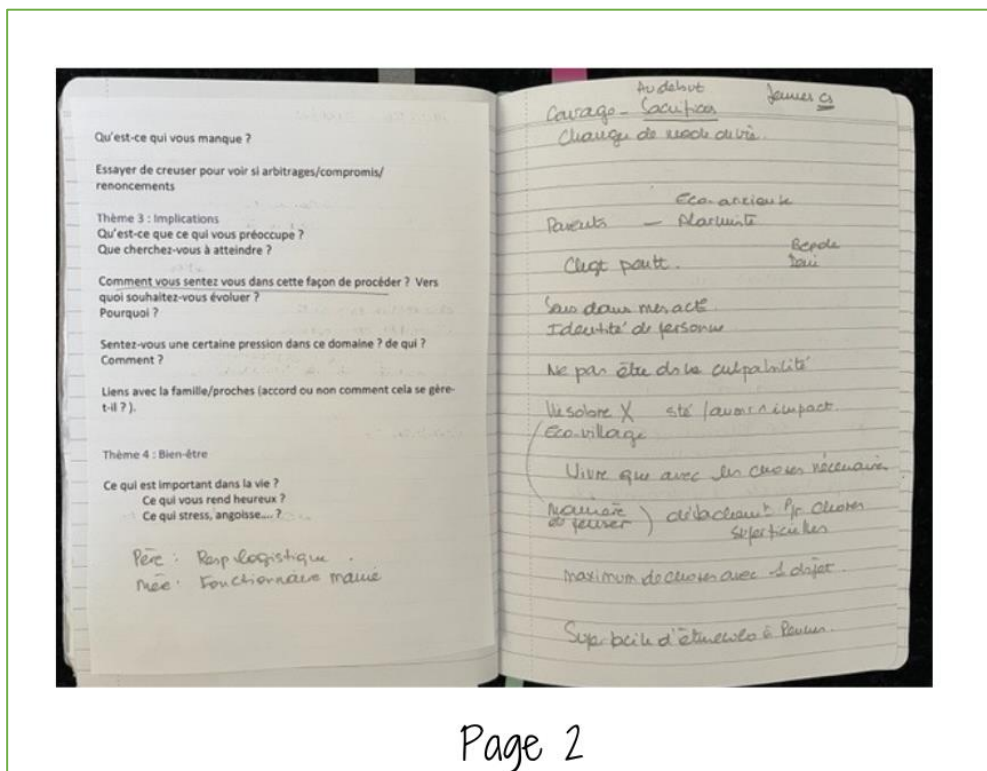 Qu'est-ce qui vous manque ?
Essayer de creuser pour voir si arbitrages/compromis/
renoncements
Thème 3 : Implications
Qu'est-ce que ce qui vous préoccupe ?
Que cherchez-vous à atteindre ?
Comment vous sentez vous dans cette façon de procéder ? Vers
quoi souhaitez-vous évoluer ?
Pourquoi ?
Sentez-vous une certaine pression dans ce domaine ? de qui ?
Comment ?
Liens avec la famille/proches (accord ou non comment cela se gère-
t-il ? ).
Thème 4 : Bien-être
Ce qui est important dans la vie ?
Ce qui vous rend heureux ?
Ce qui stress, angoisse.... ?
Père : Resp logistique .
Fonctionnaire mairie
Au début
Courage - Sacrifices
Change de mode de vie.
Parents - Alarmiste
Sens dans mes acte
Identité de personne
Ne pas être ds la culpabilité
Eco-village
Vivre que avec les choses nécessaire
manière
de penser ) détachement Pr choses
superficielles
maximum de choses avec 1 objet.
Page 2